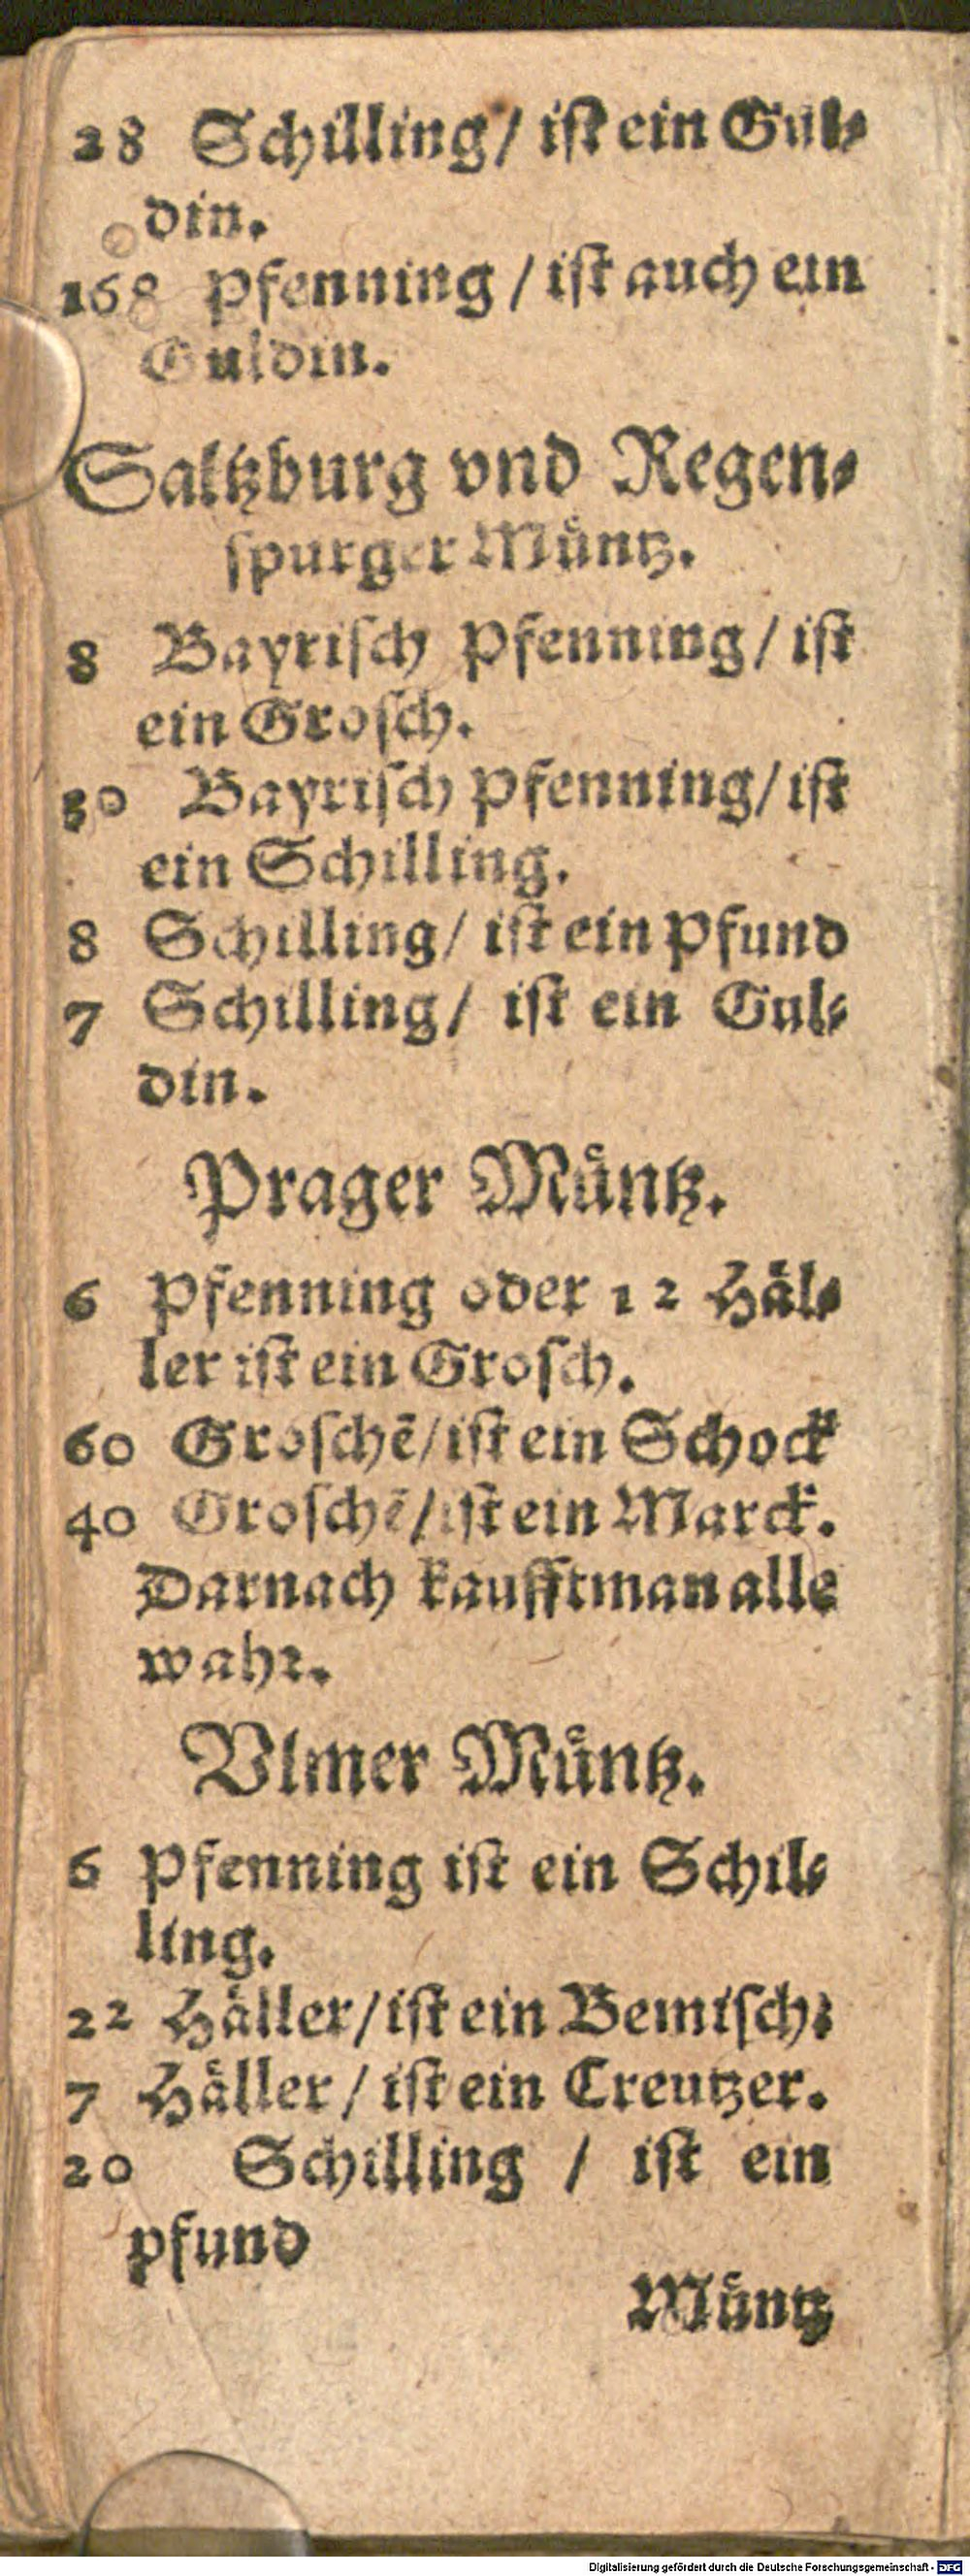 28 Schilling / ist ein Gul⸗
din.
168 Pfenning / ist auch ein
Guldin.
Saltzburg vnd Regen⸗
spurger Muͤntz.
8 Bayrisch Pfenning / ist
ein Grosch.
30 Bayrisch Pfenning / ist
ein Schilling.
8 Schilling / ist ein Pfund
7 Schilling / ist ein Gul⸗
din.
Prager Muͤntz.
6 Pfenning oder 12 Haͤl⸗
ler ist ein Grosch.
60 Groschē / ist ein Schock
40 Groschē / ist ein Marck.
Darnach kaufft man alle
wahr.
Vlmer Muͤntz.
6 Pfenning ist ein Schil⸗
ling.
22 Haͤller / ist ein Bemisch:
7 Haͤller / ist ein Creutzer.
20 Schilling / ist ein
pfund
Muͤntz
Digitalisierung gefördert durch die Deutsche Forschungsgemeinschaft - DFG